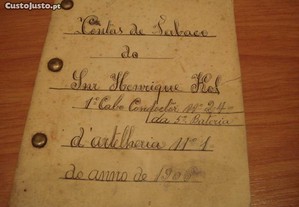 CustoJusto.pt
Contas de Tabaco
do
Snr Henrique Kol
1º Cabo Conductor Nº 24
da 5ª Bateria
d'artelheria Nº 1
do anno de 190